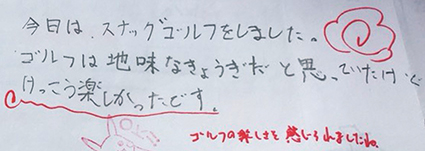 今日は、スナッグゴルフをしました。
ゴルフは地味なきょうぎだと思っていたけど
けっこう楽しかったです。
ゴルフの楽しさを感じられましたね。